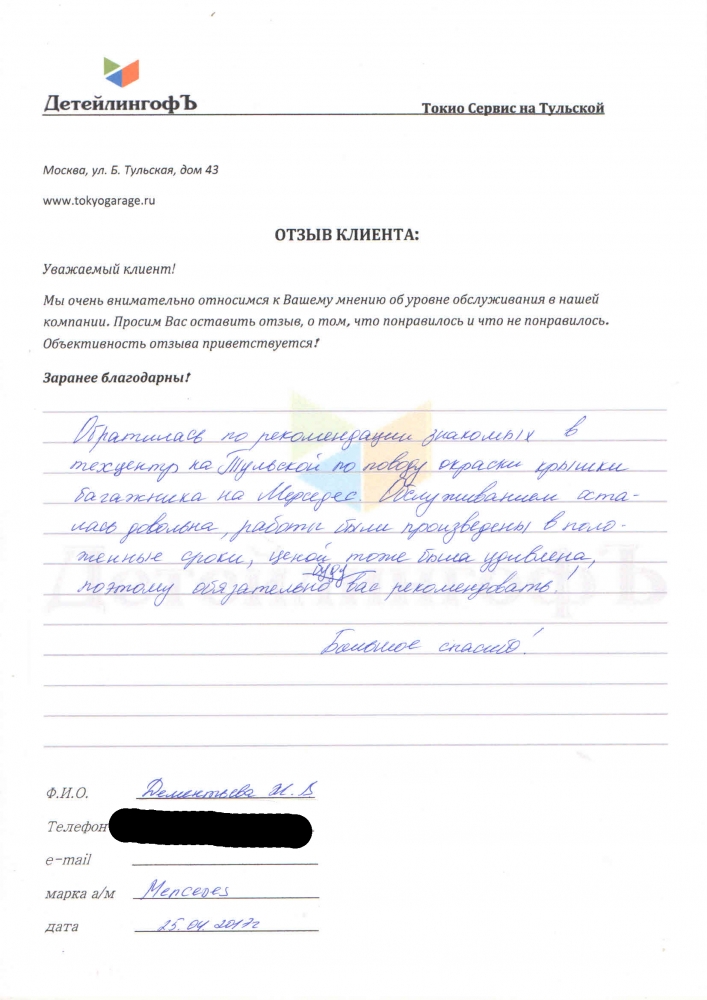 ДетейлингофЪ
Токио Сервис на Тульской
Москва, ул. Б. Тульская, дом 43
www.tokyogarage.ru
ОТЗЫВ КЛИЕНТА:
Уважаемый клиент!
Мы очень внимательно относимся к Вашему мнению об уровне обслуживания в нашей
компании. Просим Вас оставить отзыв, о том, что понравилось и что не понравилось.
Объективность отзыва приветствуется!
Заранее благодарны!
Обратилась по рекомендации знакомых в
техцентр на Тульской по поводу окраски крышки
багажника на Мерседес. Обслуживанием оста-
лась довольна, работы были произведены в поло-
женные сроки, ценой тоже была удивлена,
буду
поэтому обязательно Вас рекомендовать!
Большое спасибо!
Ф.И.О. Дементьева Н. В
Телефон
e-mail
марка а/м Мерседес
дата 25.04.2017г